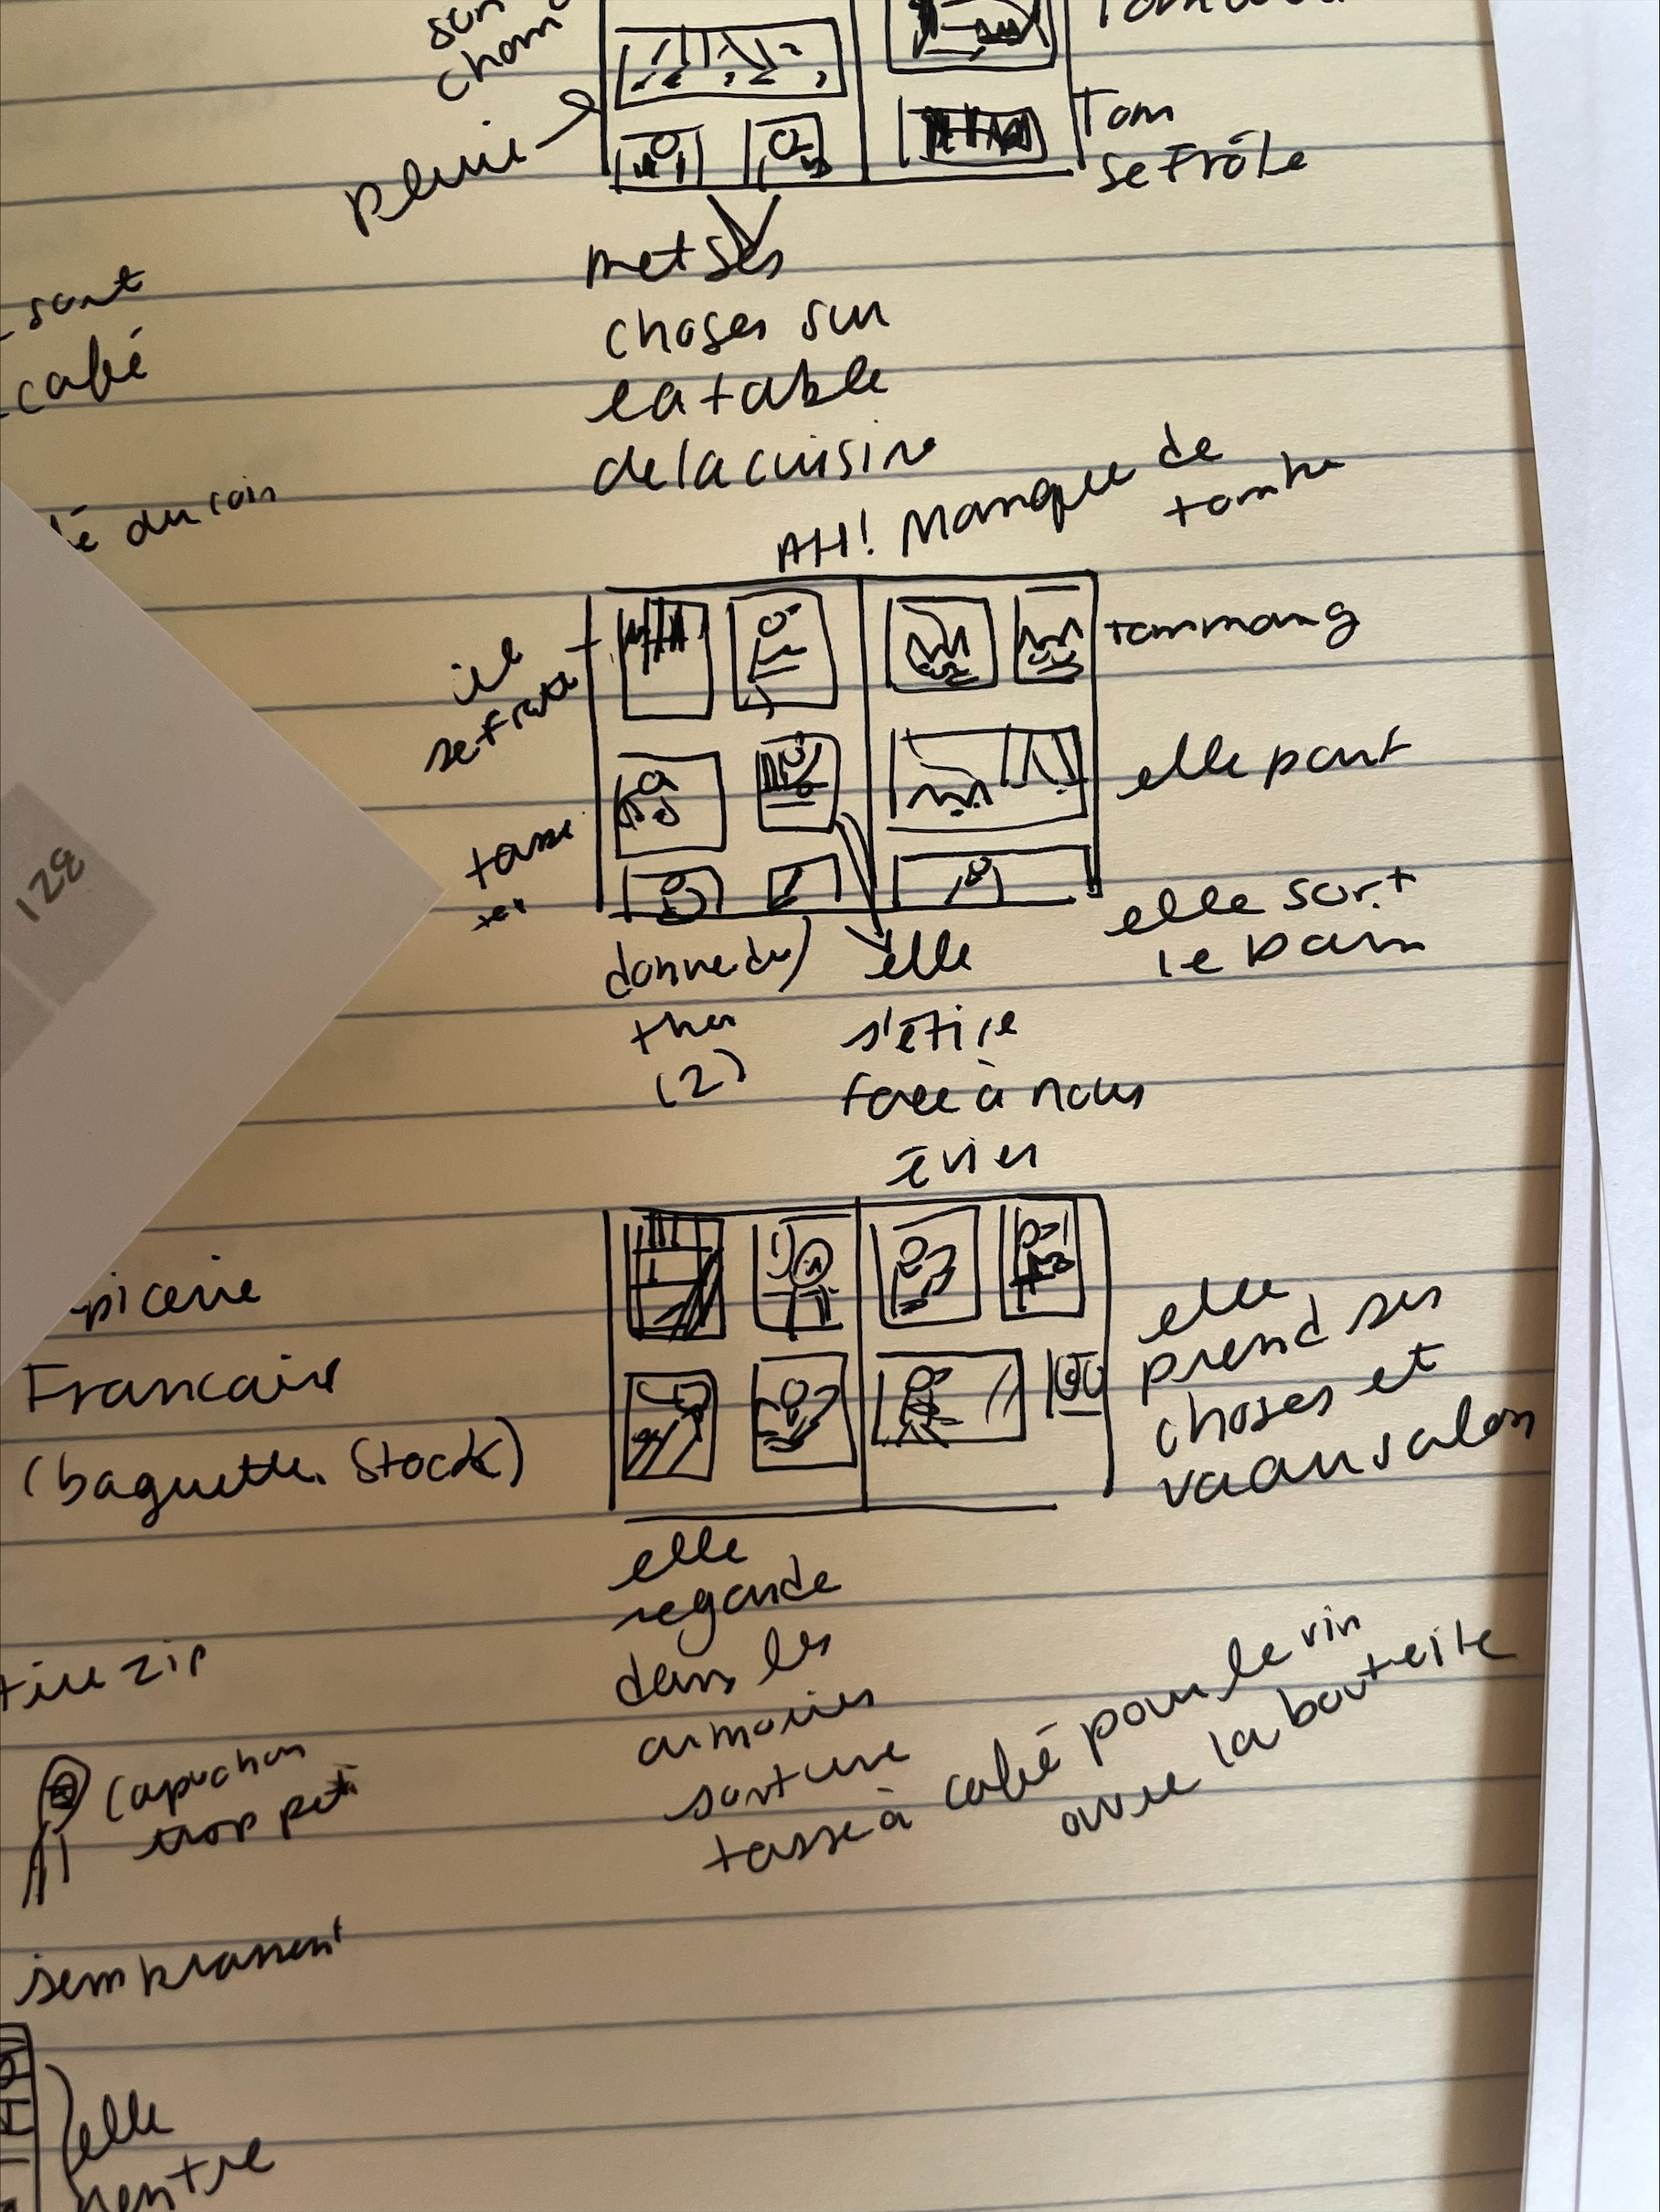 son
cham
pluie
Tom
se frôle
met ses
choses sur
la table
de la cuisine
sont
café
du coin
AH! Manque de
tombe
il
se frotte
Tom mang
elle part
tasse
128
elle sort
le bain
donne du
thé
(2)
elle
s'étire
face à nous
évier
picerie
Francaise
(baguette. Stock)
elle
prend ses
choses et
va au salon
elle
regarde
dans les
armoires
sort une
tasse à café pour le vin
ouvre la bouteille
tire zip
Capuchon
trop peti
sembrassent
elle
rentre